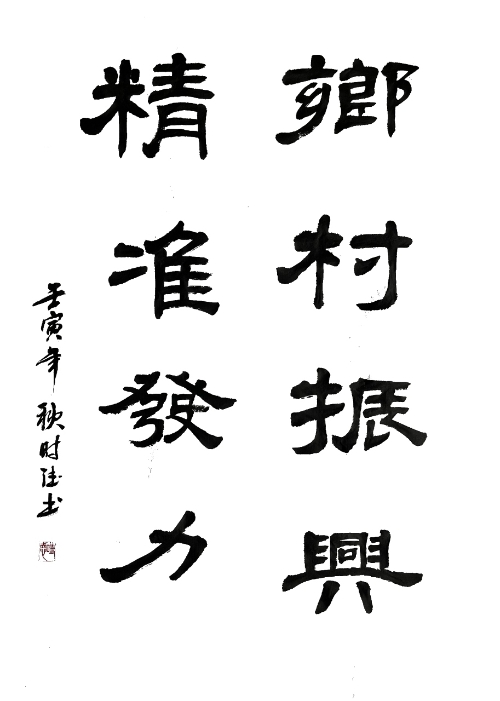 鄉村振興
精准發力
壬寅年秋時佳书